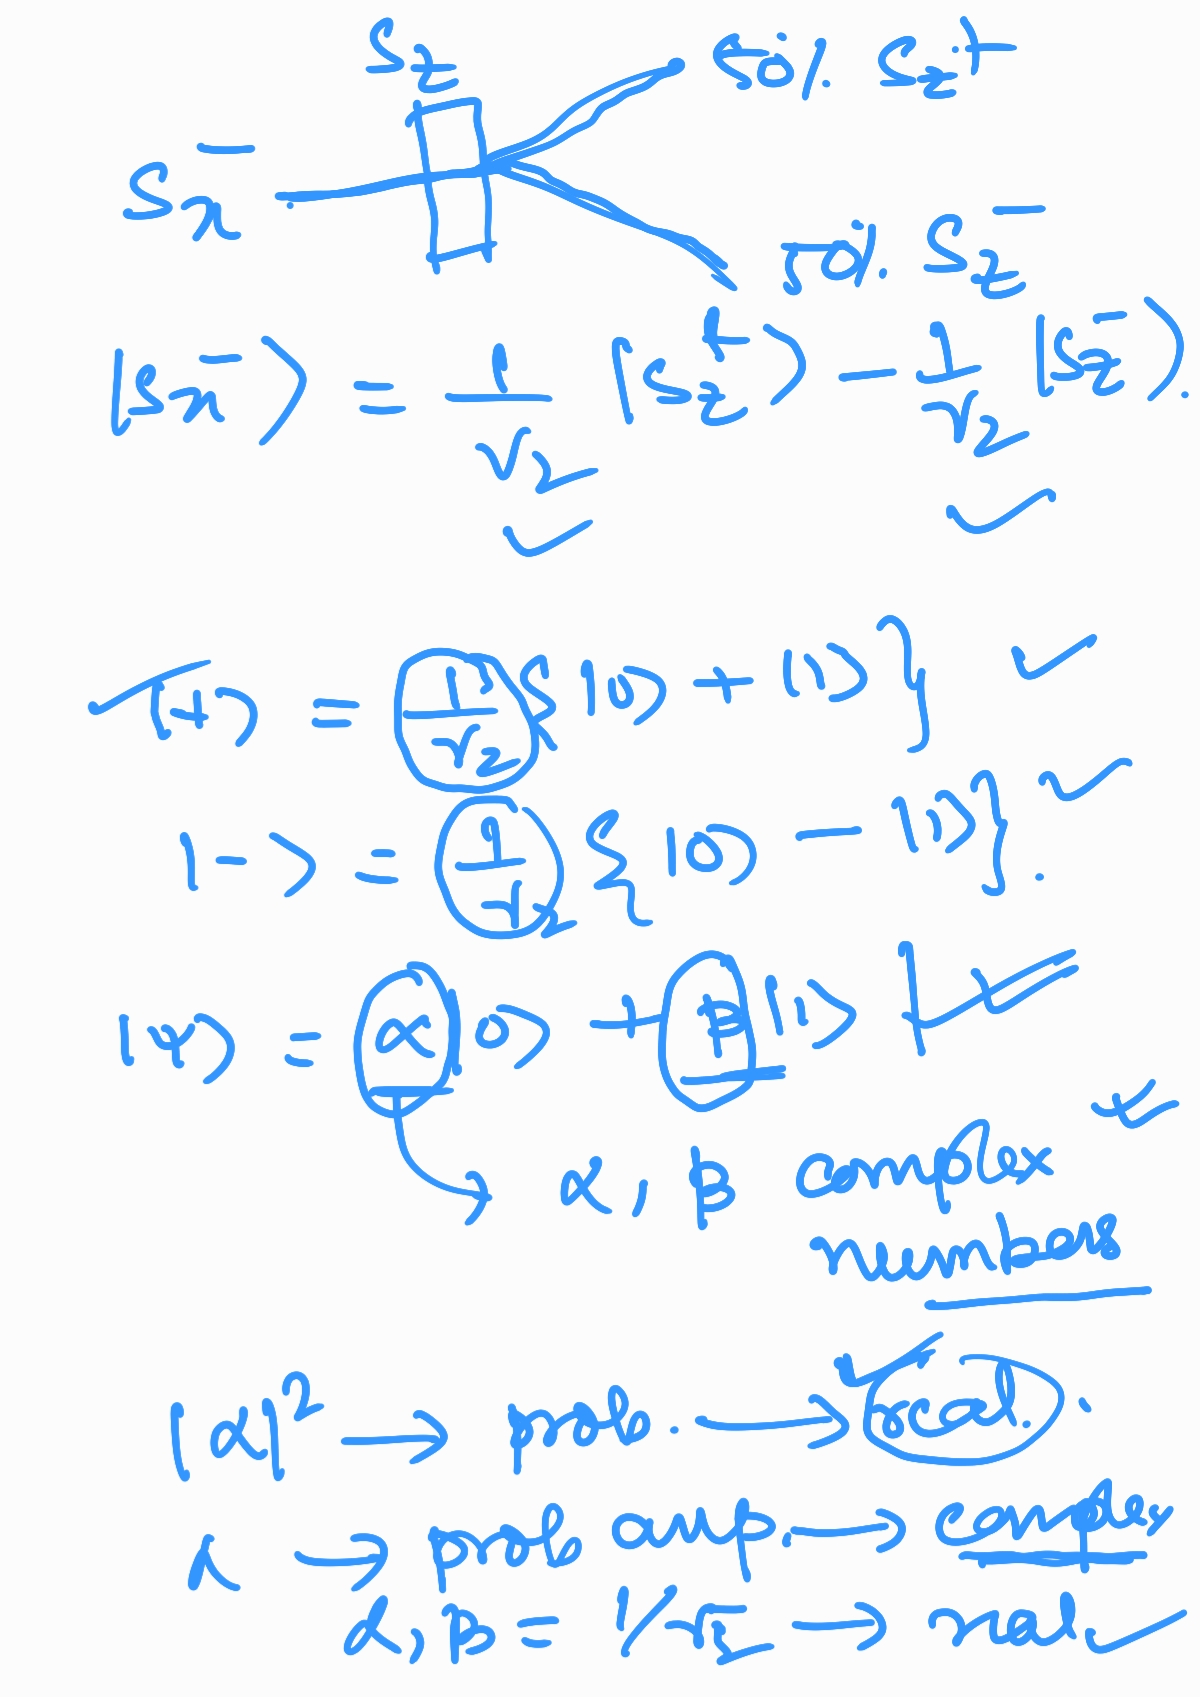 S_z
50% S_z^+
S_x^-
50% S_z^-
|S_x^-⟩ = 1/√2 |S_z^+⟩ − 1/√2 |S_z^-⟩.
|+⟩ = 1/√2 {|0⟩ + |1⟩}
|−⟩ = 1/√2 {|0⟩ − |1⟩}.
|ψ⟩ = α|0⟩ + β|1⟩
α, β complex
numbers
|α|² → prob. → real.
α → prob amp. → complex
α, β = 1/√2 → real